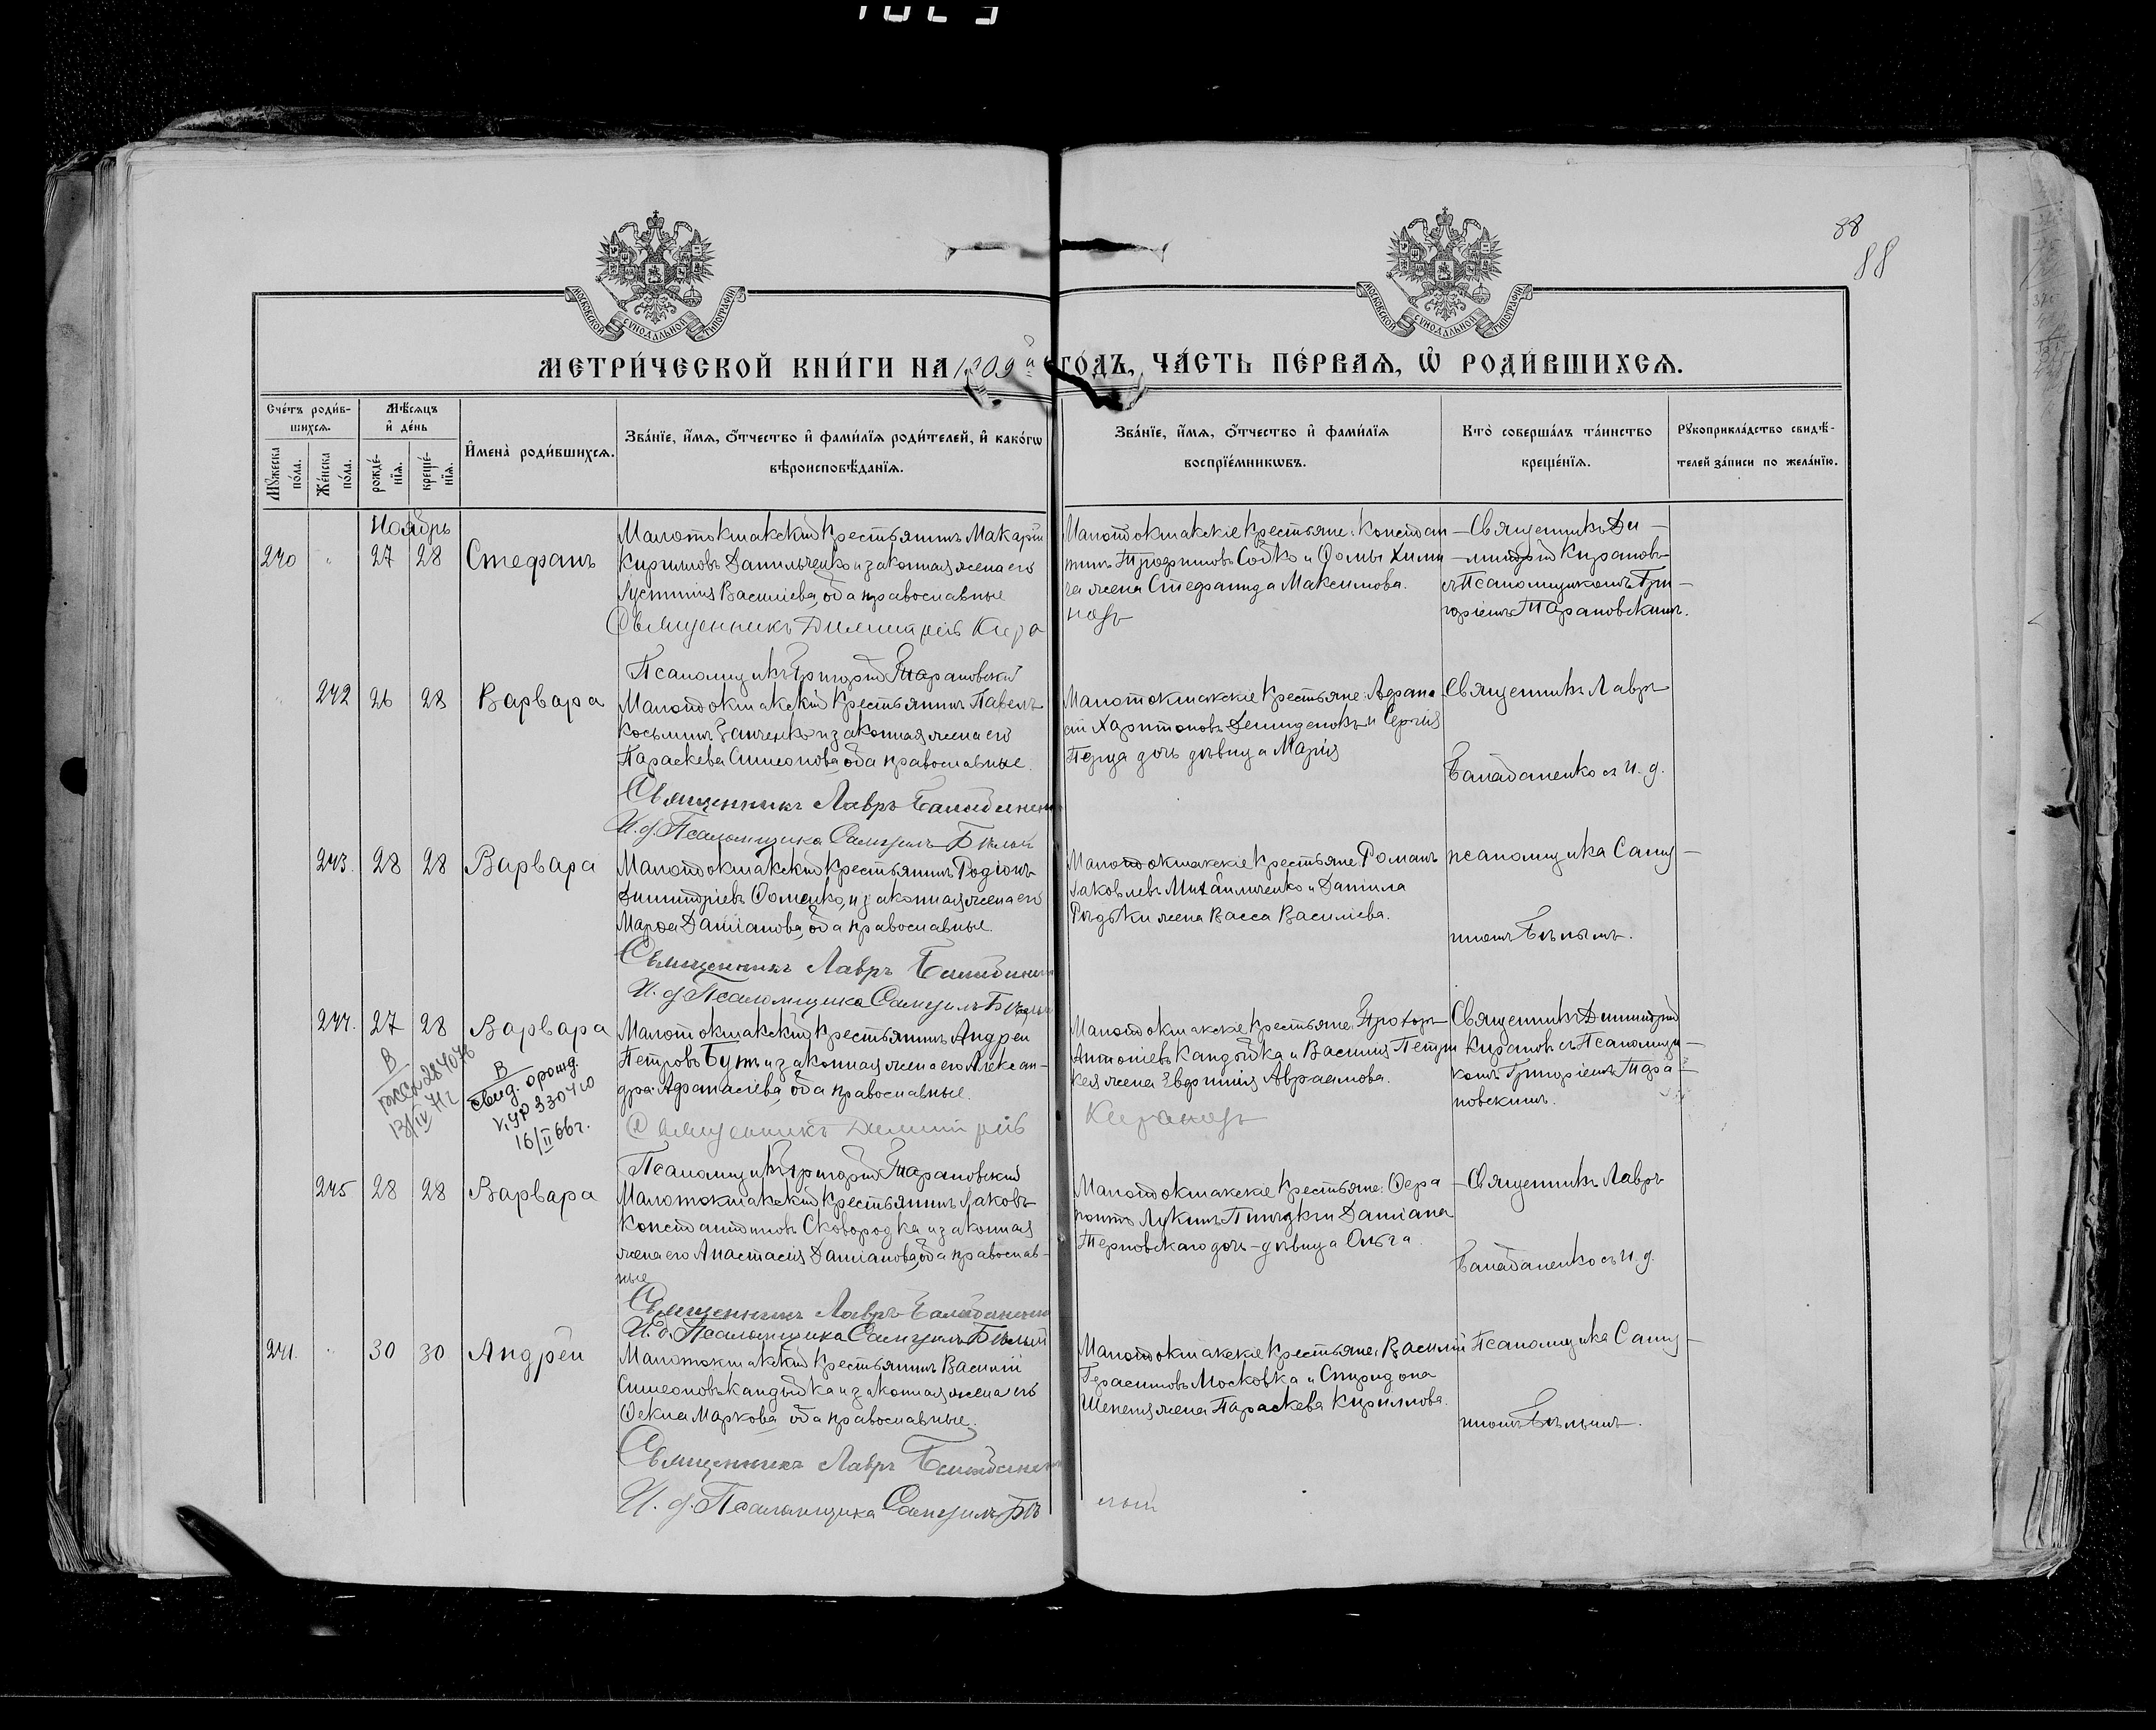 88
88
МОСКОВСКОЙ СѴНОДАЛЬНОЙ ТИПОГРАФІИ
МОСКОВСКОЙ СѴНОДАЛЬНОЙ ТИПОГРАФІИ
МЕТРИ́ЧЕСКОЙ КНИ́ГИ НА 1909й ГО́ДЪ, ЧА́СТЬ ПЕ́РВАѦ, Ѡ҆ РОДИ́ВШИХСѦ.
Сче́тъ роди́в-
шихсѧ.
Мꙋ́жеска по́ла.
Же́нска по́ла.
Мѣ́сѧцъ
и҆ де́нь
рожде́-
нїѧ.
креще́-
нїѧ.
И҆мена̀ роди́вшихсѧ.
Зва́нїе, и҆́мѧ, ѻ҆́тчество и҆ фами́лїѧ роди́телей, и҆ како́гѡ
вѣроисповѣ́данїѧ.
Зва́нїе, и҆́мѧ, ѻ҆́тчество и҆ фами́лїѧ
воспрїе́мникѡвъ.
Кто̀ соверша́лъ та́инство
креще́нїѧ.
Рꙋкоприкла́дство свидѣ́-
телей за́писи по жела́нїю.
Ноябрь
240 " 27 28 Стефанъ
Малотокмакскій крестьянинъ Макарій
Кирилловъ Данильченко и законная жена его
Іустинія Василіева, оба православные
Священникъ Димитрій Кира
новъ
Псаломщикъ Григорій Тарановскій
Малотокмакскіе крестьяне: Констан
тинъ Трофимовъ Сойко и Ѳомы Хими
ча жена Стефанида Максимова.
Священникъ Ди-
митрій Кирановъ
съ Псаломщикомъ Гри-
горіемъ Тарановскимъ.
242 26 28 Варвара
Малотокмакскій крестьянинъ Павелъ
Косьминъ Заиченко и законная жена его
Параскева Симеонова, оба православные.
Священникъ Лавръ Балабаненко
И. д. Псаломщика Самуилъ Бѣлый
Малотокмакскіе крестьяне: Афана
сій Харитоновъ Демиденковъ и Сергія
дочь дѣвица Марія
Священникъ Лавръ
Балабаненко съ и. д.
243. 28 28 Варвара
Малотокмакскій крестьянинъ Родіонъ
Димитріевъ Ѳоменко, и законная жена его
Марѳа Даміанова, оба православные
Священникъ Лавръ Балабаненко
И. д. Псаломщика Самуилъ Бѣлый
Малотокмакскіе крестьяне: Романъ
Іаковлевъ Михайличенко и Даніила
Рѣдьки жена Васса Василіева.
псаломщика Саму-
иломъ Бѣлымъ.
244. 27 28 Варвара
Малотокмакскій крестьянинъ Андрей
Петровъ Бутъ и законная жена его Алексан-
дра Афанасіева, оба православные.
Священникъ Димитрій
Кирановъ
Псаломщикъ Григорій Тарановскій
Малотокмакскіе крестьяне: Прохоръ
Антоніевъ Кандыбка и Василія
жена Евфимія Авраамова.
Священникъ Димитрій
Кирановъ съ Псаломщи-
комъ Григоріемъ Тара-
новскимъ.
В
13/IV 71г
В
свид. о рожд.
16/II 66г.
245 28 28 Варвара
Малотокмакскій крестьянинъ Іаковъ
Константиновъ Сковородка и законная
жена его Анастасія Даміанова, оба православ-
ные
Священникъ Лавръ Балабаненко
И. д. Псаломщика Самуилъ Бѣлый
Малотокмакскіе крестьяне: Ѳера
понтъ Лукинъ и Даміана
Терновскаго дочь-дѣвица Ольга.
Священникъ Лавръ
Балабаненко съ и. д.
241. " 30 30 Андрей
Малотокмакскій крестьянинъ Василій
Симеоновъ Кандыбка и законная жена его
Ѳекла Маркова, оба православные.
Священникъ Лавръ Балабаненко
И. д. Псаломщика Самуилъ Бѣ
лый
Малотокмакскіе крестьяне: Василій
Герасимовъ Московка и Спиридона
Шепеля жена Параскева Кириллова.
Псаломщика Саму-
иломъ Бѣлымъ.